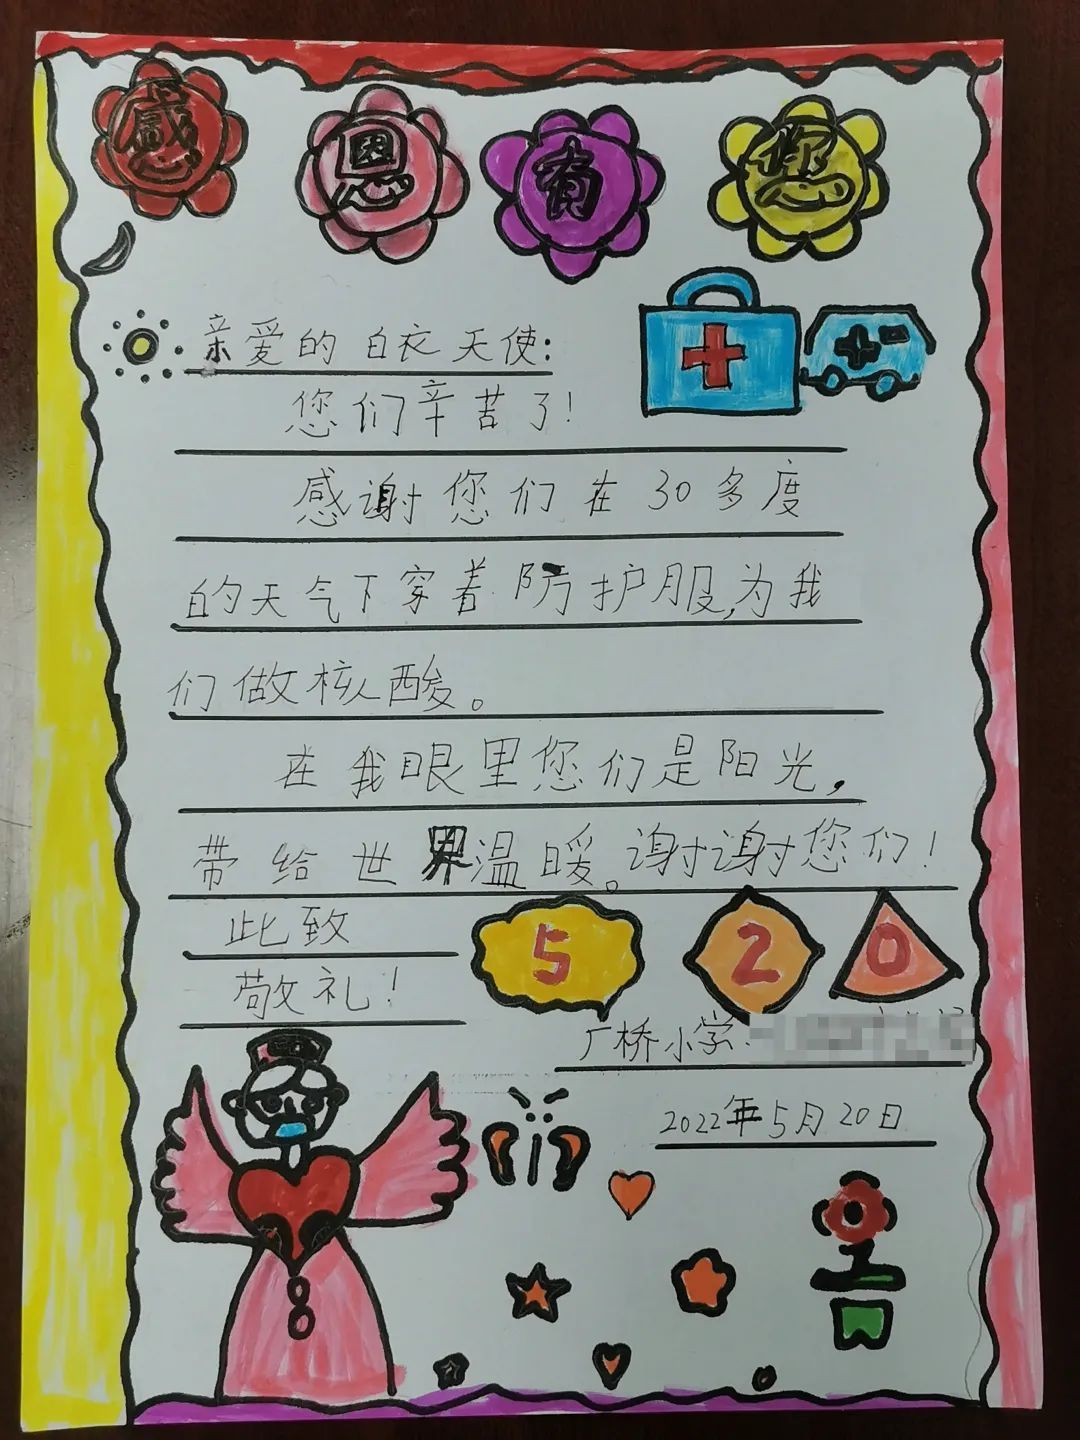 感恩有您
亲爱的白衣天使:
您们辛苦了!
感谢您们在30多度
的天气下穿着防护服,为我
们做核酸。
在我眼里您们是阳光,
带给世界温暖。谢谢您们!
此致
敬礼!
5 2 0
广桥小学:
2022年5月20日